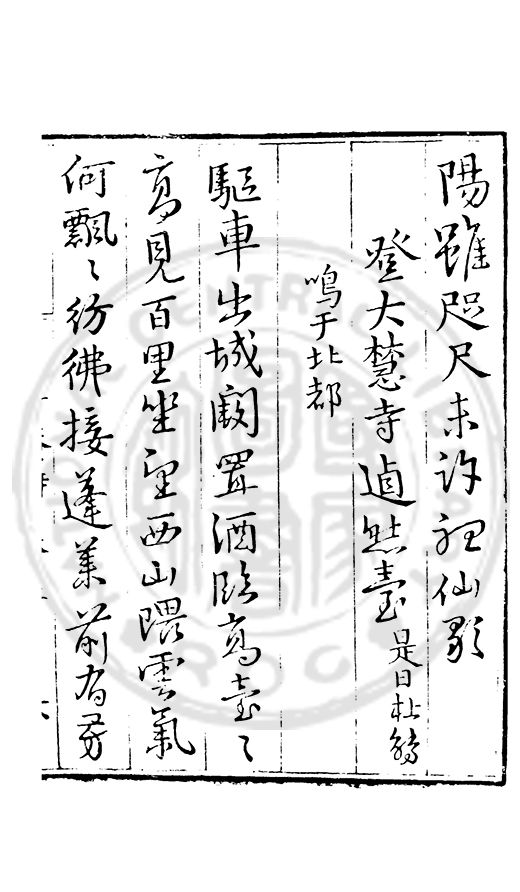 陽雖咫尺未許仙
登大慧寺逌然臺是日杜鵑
鳴于北都
驅車出城闕置酒臨高臺〻
高見百里坐望西山隈雲氣
何飄〻彷彿接蓬萊前有芳